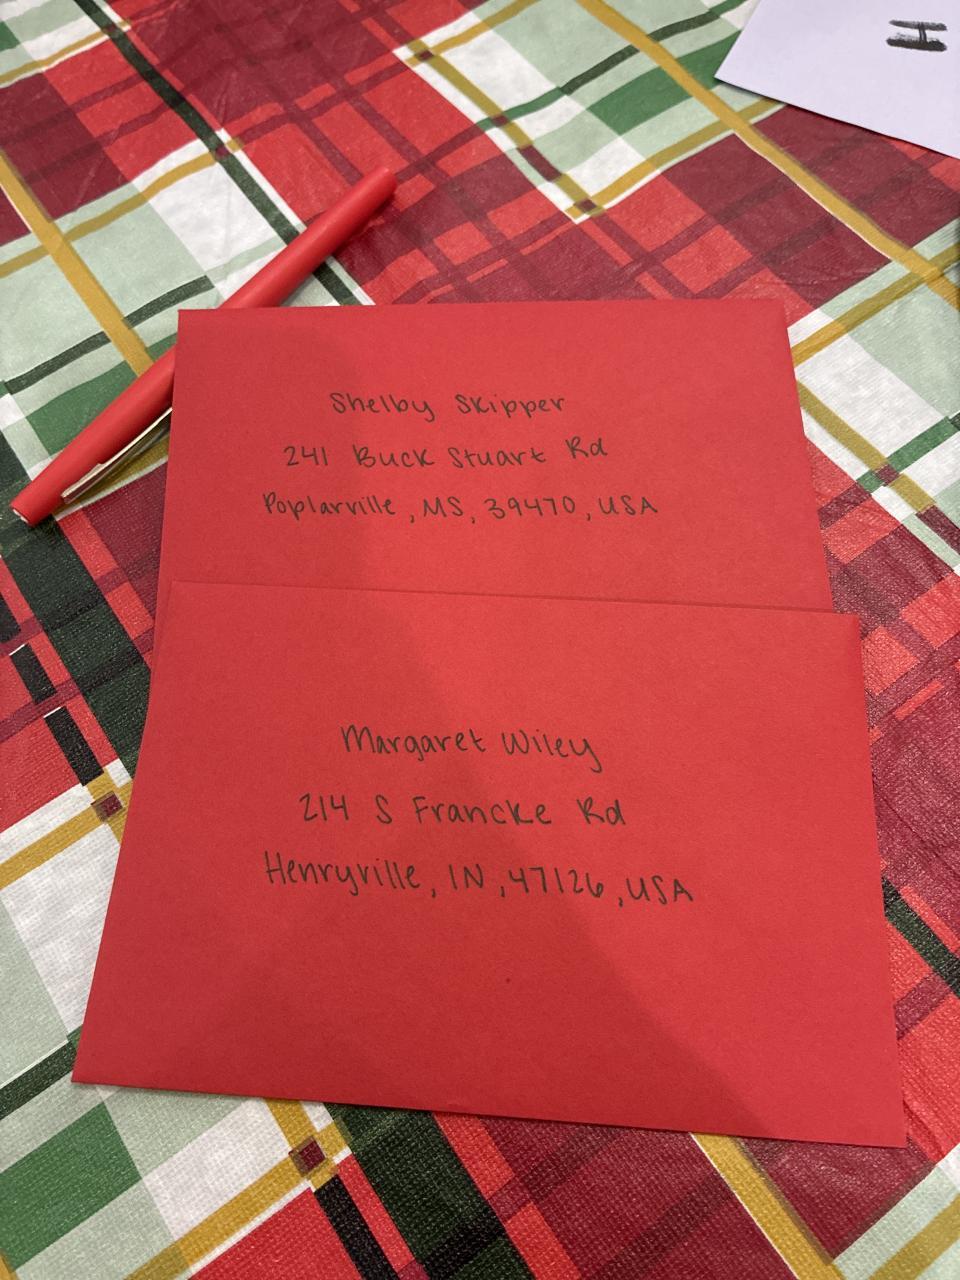 H
Shelby Skipper
241 Buck Stuart Rd
Poplarville, MS, 39470, USA
Margaret Wiley
214 S Francke Rd
Henryville, IN, 47126, USA